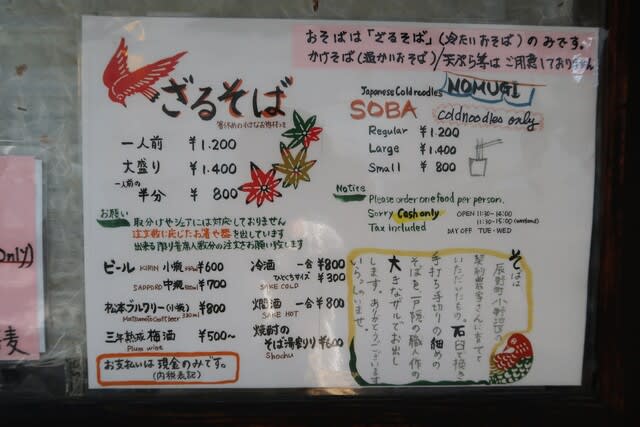 おそばは「ざるそば」(冷たいおそば)のみです。
かけそば(温かいおそば)/天ぷら等はご用意しておりません
ざるそば
一人前 ¥1.200
大盛り ¥1.400
一人前の半分 ¥800
お願い
取分けやシェアには対応しておりません
注文数に応じたお箸や器を出しています
出来る限り着席人数分の注文をお願い致します
ビール KIRIN 小瓶 ¥600
SAPPORO 中瓶 ¥700
松本ブルワリー(小瓶) ¥800
Matsumoto Craft beer 330ml
三年熟成 梅酒 ¥500〜
Plum wine
お支払いは現金のみです。
(内税表記)
冷酒 一合 ¥800
ひとくちサイズ ¥300
SAKE COLD
燗酒 一合 ¥800
SAKE HOT
焼酎のそば湯割り ¥600
Shochu
Japanese Cold noodles
NOMUGI
SOBA
cold noodles only
Regular ¥1.200
Large ¥1.400
Small ¥800
Notice
Please order one food per person.
Sorry Cash only
Tax included
OPEN 11:30-14:00
11:30-15:00 (weekend)
DAY OFF TUE・WED
そばは
辰野町小野地区の
契約農家さんに育てて
いただいたもの。石臼で挽き
手打ち手切りの細めの
そばを戸隠の職人作の
大きなザルでお出し
します。ありがとうございます
いらっしゃいませ。
only)
麦